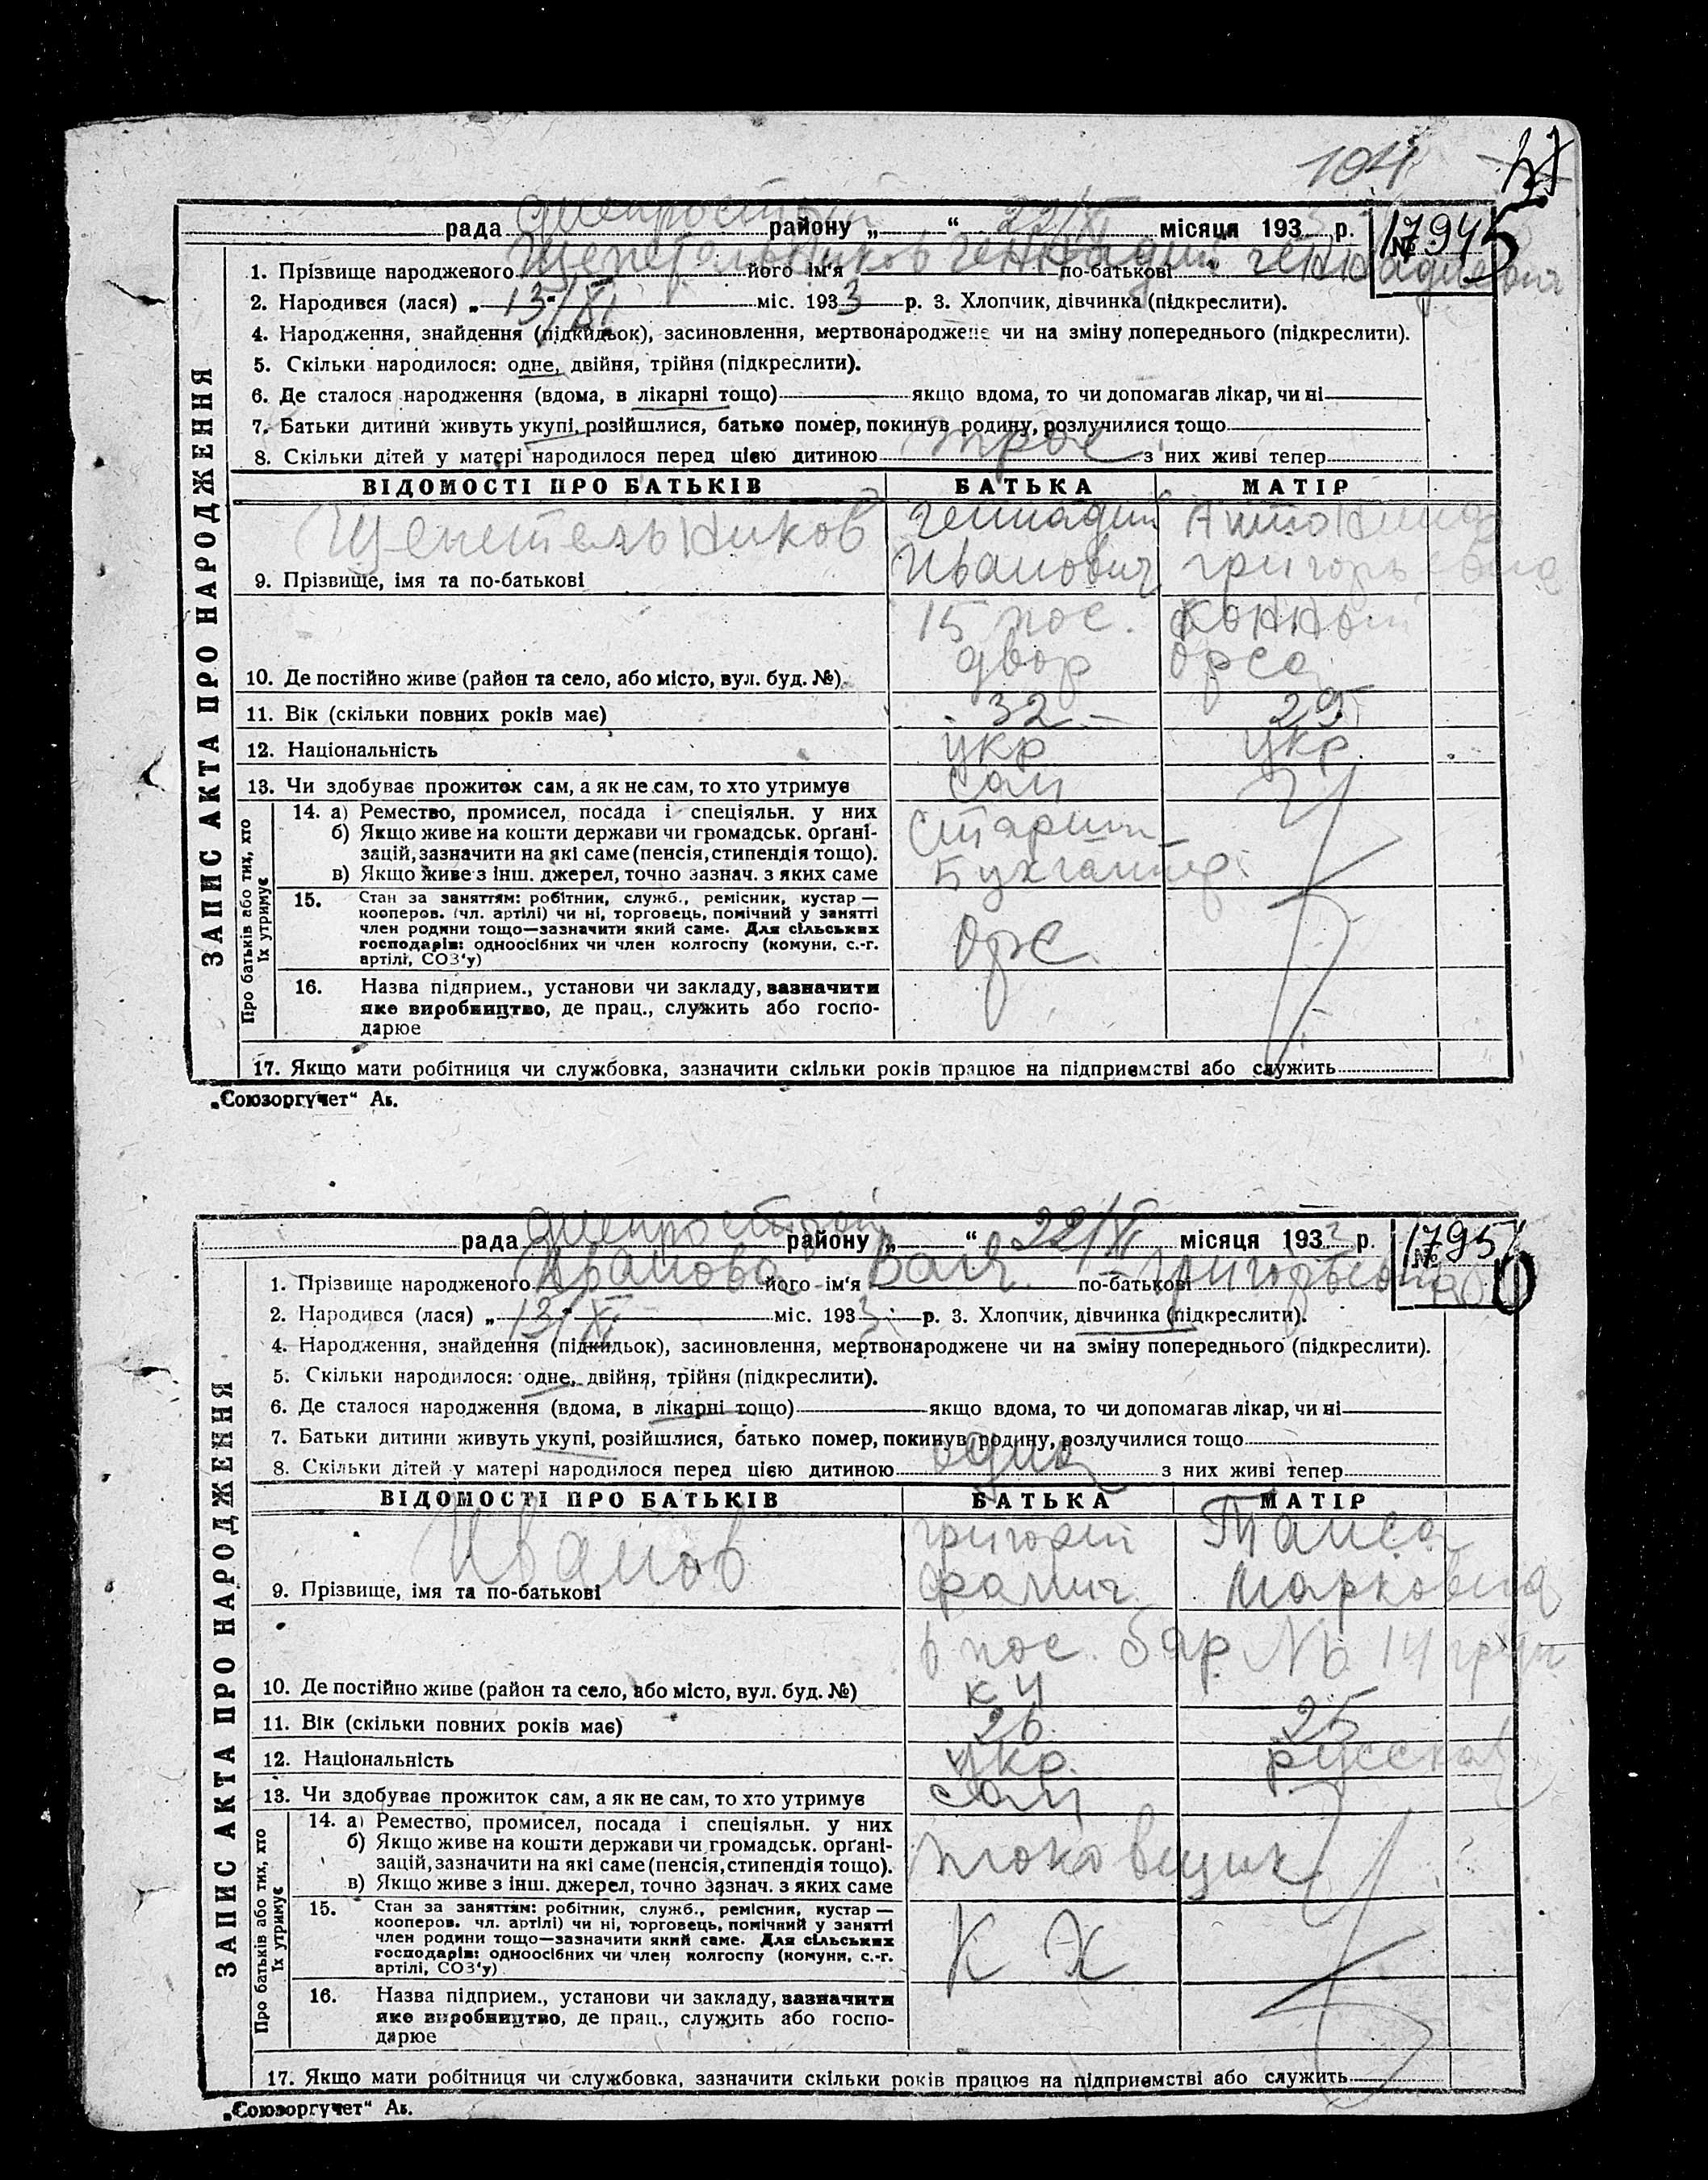 104
рада Днепрострой району „ “ 22/XI місяця 193 р. № 1794
1. Прізвище народженого Щепетельников його ім'я Геннадий по-батькові Геннадиевич
2. Народився (лася) „ 13/XI міс. 1933 р. 3. Хлопчик, дівчинка (підкреслити).
4. Народження, знайдення (підкидьок), засиновлення, мертвонароджене чи на зміну попереднього (підкреслити).
5. Скільки народилося: одне, двійня, трійня (підкреслити).
6. Де сталося народження (вдома, в лікарні тощо) якщо вдома, то чи допомагав лікар, чи ні
7. Батьки дитини живуть укупі, розійшлися, батько помер, покинув родину, розлучилися тощо
8. Скільки дітей у матері народилося перед цією дитиною трое з них живі тепер
ЗАПИС АКТА ПРО НАРОДЖЕННЯ
ВІДОМОСТІ ПРО БАТЬКІВ БАТЬКА МАТІР
Щепетельников Геннадий Антонина
9. Прізвище, імя та по-батькові Иванович Григорьевна
15 пос. Конный
10. Де постійно живе (район та село, або місто, вул. буд. №) двор Орса
11. Вік (скільки повних років має) 32 29
12. Національність укр укр.
13. Чи здобуває прожиток сам, а як не сам, то хто утримує сам
Про батьків або тих, хто їх утримує
14. а) Ремество, промисел, посада і спеціяльн. у них
б) Якщо живе на кошти держави чи громадськ. орґані-
зацій, зазначити на які саме (пенсія, стипендія тощо).
в) Якщо живе з інш. джерел, точно зазнач. з яких саме
Старший
Бухгалтер
15. Стан за заняттям: робітник, служб., ремісник, кустар —
кооперов. (чл. артілі) чи ні, торговець, помічний у занятті
член родини тощо—зазначити який саме. Для сільських
господарів: одноосібних чи член колгоспу (комуни, с.-г.
артілі, СОЗ'у)
Орс
16. Назва підприєм., установи чи закладу, зазначити
яке виробництво, де прац., служить або госпо-
дарює
17. Якщо мати робітниця чи службовка, зазначити скільки років працює на підприємстві або служить
„Союзоргучет“ Аь.
рада Днепрострой району „ “ 22/XI місяця 1933 р. № 1795
1. Прізвище народженого Иванова його ім'я Валя по-батькові Григорьевна
2. Народився (лася) „ 13/XI міс. 1933 р. 3. Хлопчик, дівчинка (підкреслити).
4. Народження, знайдення (підкидьок), засиновлення, мертвонароджене чи на зміну попереднього (підкреслити).
5. Скільки народилося: одне, двійня, трійня (підкреслити).
6. Де сталося народження (вдома, в лікарні тощо) якщо вдома, то чи допомагав лікар, чи ні
7. Батьки дитини живуть укупі, розійшлися, батько помер, покинув родину, розлучилися тощо
8. Скільки дітей у матері народилося перед цією дитиною один з них живі тепер
ЗАПИС АКТА ПРО НАРОДЖЕННЯ
ВІДОМОСТІ ПРО БАТЬКІВ БАТЬКА МАТІР
Иванов Григорий Таиса
9. Прізвище, імя та по-батькові Марковна
6 пос. бар № 14
10. Де постійно живе (район та село, або місто, вул. буд. №) к 4
11. Вік (скільки повних років має) 26 25
12. Національність укр. русская
13. Чи здобуває прожиток сам, а як не сам, то хто утримує сам
Про батьків або тих, хто їх утримує
14. а) Ремество, промисел, посада і спеціяльн. у них
б) Якщо живе на кошти держави чи громадськ. орґані-
зацій, зазначити на які саме (пенсія, стипендія тощо).
в) Якщо живе з інш. джерел, точно зазнач. з яких саме
15. Стан за заняттям: робітник, служб., ремісник, кустар —
кооперов. чл. артілі) чи ні, торговець, помічний у занятті
член родини тощо—зазначити який саме. Для сільських
господарів: одноосібних чи член колгоспу (комуни, с.-г.
артілі, СОЗ'у)
К Х
16. Назва підприєм., установи чи закладу, зазначити
яке виробництво, де прац., служить або госпо-
дарює
17. Якщо мати робітниця чи службовка, зазначити скільки років працює на підприємстві або служить
„Союзоргучет“ Аь.